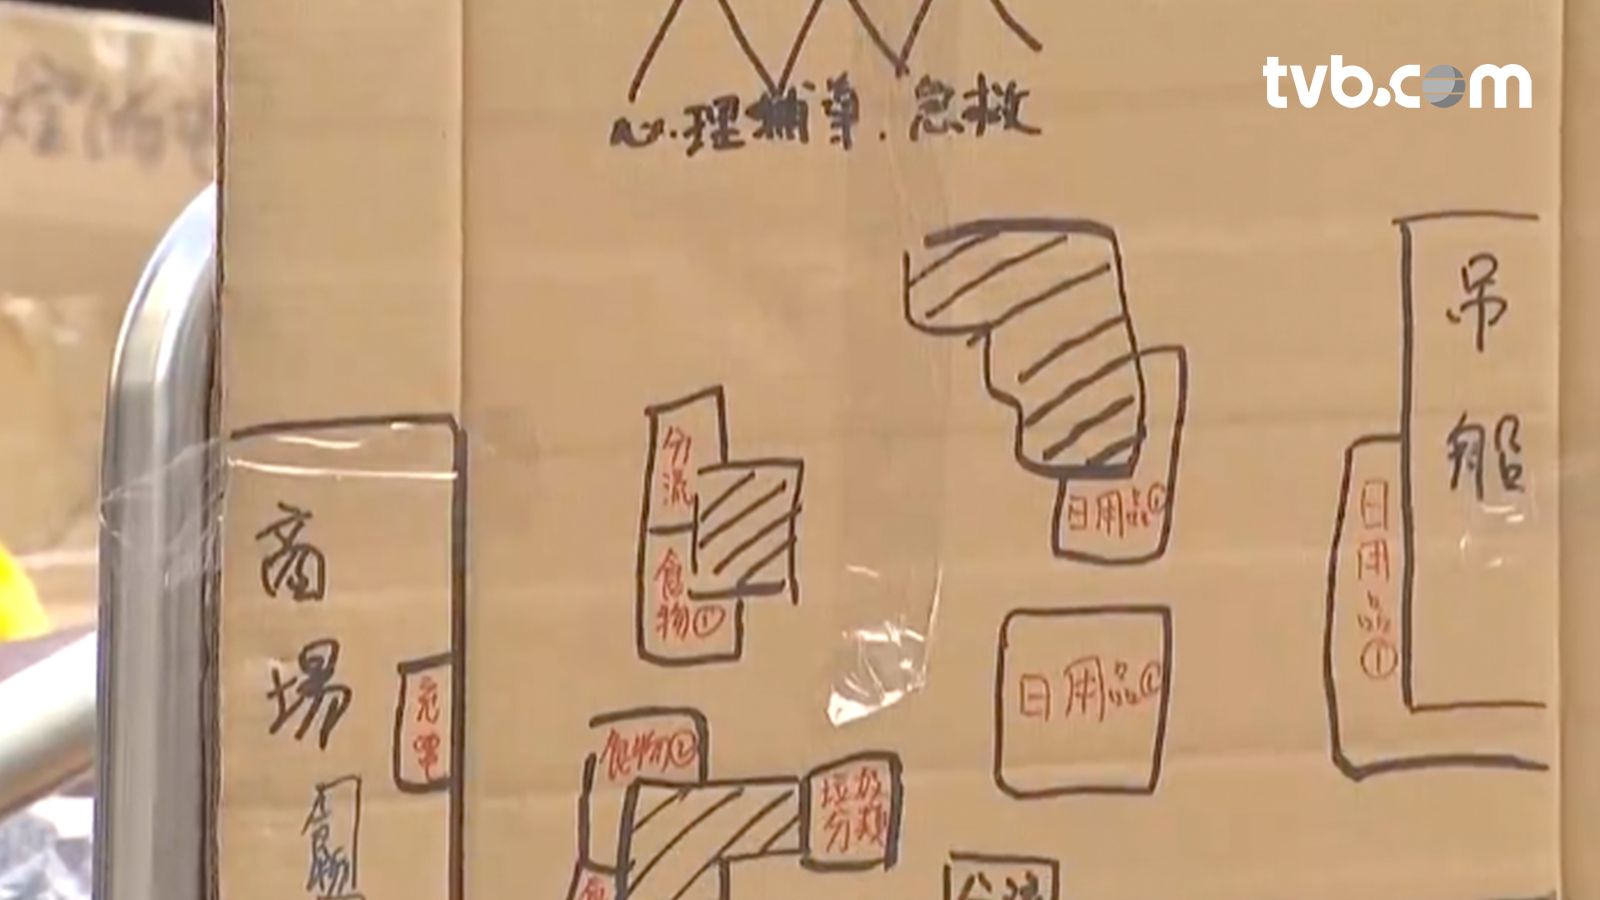 tvb.com
心理輔導．急救
吊船
分流
日用品①
日用品①
食物①
商場
日用品①
充電
食物②
垃圾分類
食物